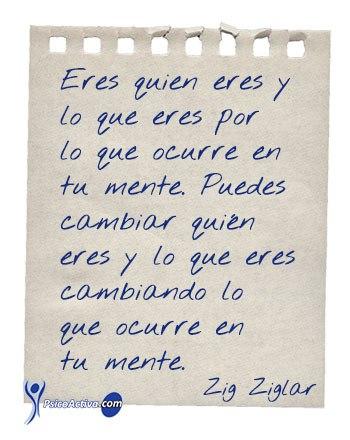 Eres quien eres y
lo que eres por
lo que ocurre en
tu mente. Puedes
cambiar quién
eres y lo que eres
cambiando lo
que ocurre en
tu mente.
Zig Ziglar
PsicoActiva.com